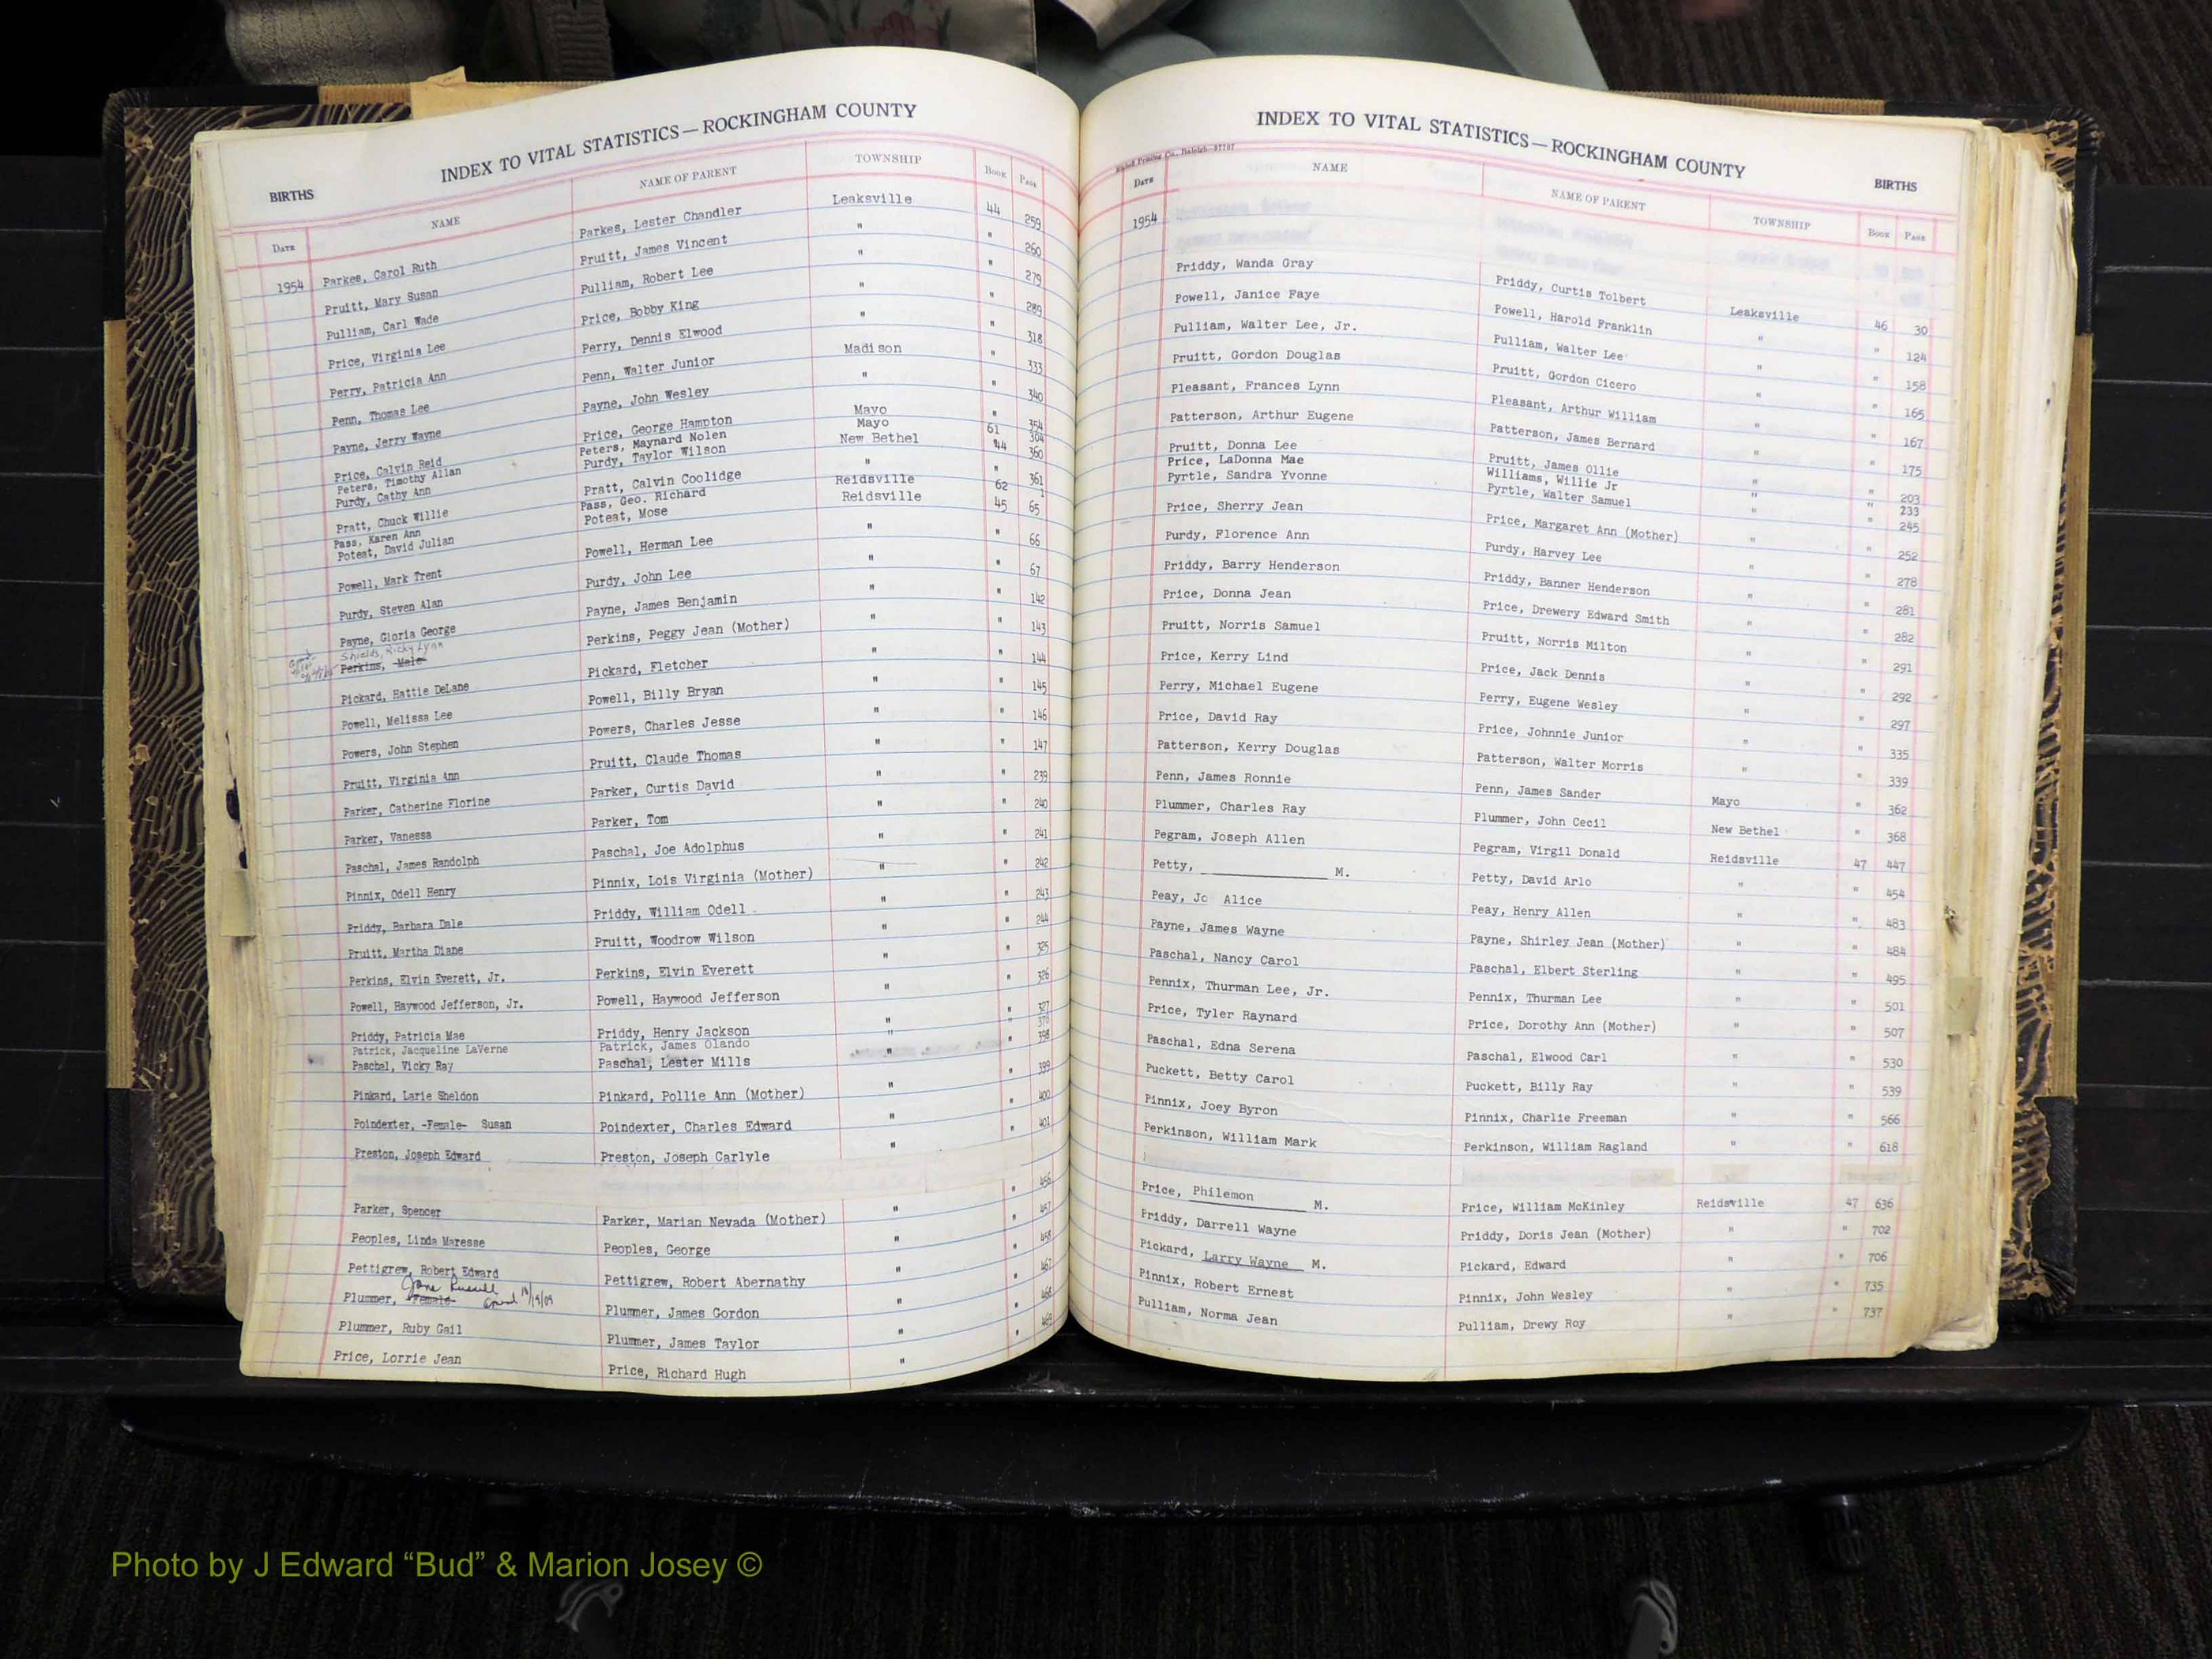 INDEX TO VITAL STATISTICS—ROCKINGHAM COUNTY
BIRTHS
DATE NAME NAME OF PARENT TOWNSHIP BOOK PAGE
1954 Parkes, Carol Ruth Parkes, Lester Chandler Leaksville 44 259
Pruitt, Mary Susan Pruitt, James Vincent " " 260
Pulliam, Carl Wade Pulliam, Robert Lee " " 279
Price, Virginia Lee Price, Bobby King " " 289
Perry, Patricia Ann Perry, Dennis Elwood " " 318
Penn, Thomas Lee Penn, Walter Junior Madison " 333
Payne, Jerry Wayne Payne, John Wesley " " 340
Price, Calvin Reid Price, George Hampton Mayo " 354
Peters, Timothy Allan Peters, Maynard Nolen Mayo 61 304
Purdy, Cathy Ann Purdy, Taylor Wilson New Bethel 44 360
Pratt, Chuck Willie Pratt, Calvin Coolidge " " 361
Pass, Karen Ann Pass, Geo. Richard Reidsville 62 1
Poteat, David Julian Poteat, Mose Reidsville 45 65
Powell, Mark Trent Powell, Herman Lee " " 66
Purdy, Steven Alan Purdy, John Lee " " 67
Payne, Gloria George Payne, James Benjamin " " 142
Shields, Ricky Lynn
Perkins, -Male- Perkins, Peggy Jean (Mother) " " 143
Pickard, Hattie DeLane Pickard, Fletcher " " 144
Powell, Melissa Lee Powell, Billy Bryan " " 145
Powers, John Stephen Powers, Charles Jesse " " 146
Pruitt, Virginia Ann Pruitt, Claude Thomas " " 147
Parker, Catherine Florine Parker, Curtis David " " 239
Parker, Vanessa Parker, Tom " " 240
Paschal, James Randolph Paschal, Joe Adolphus " " 241
Pinnix, Odell Henry Pinnix, Lois Virginia (Mother) " " 242
Priddy, Barbara Dale Priddy, William Odell " " 243
Pruitt, Martha Diane Pruitt, Woodrow Wilson " " 244
Perkins, Elvin Everett, Jr. Perkins, Elvin Everett " " 325
Powell, Haywood Jefferson, Jr. Powell, Haywood Jefferson " " 326
Priddy, Patricia Mae Priddy, Henry Jackson " " 327
Patrick, Jacqueline LaVerne Patrick, James Olando " "
Paschal, Vicky Ray Paschal, Lester Mills " " 398
Pinkard, Larie Sheldon Pinkard, Pollie Ann (Mother) " " 399
Poindexter, -Female- Susan Poindexter, Charles Edward " " 400
Preston, Joseph Edward Preston, Joseph Carlyle " " 401
Parker, Spencer Parker, Marian Nevada (Mother) " " 456
Peoples, Linda Maresse Peoples, George " " 457
Pettigrew, Robert Edward Pettigrew, Robert Abernathy " " 458
Jane Russell
Plummer, -Female- Plummer, James Gordon " " 467
Plummer, Ruby Gail Plummer, James Taylor " " 468
Price, Lorrie Jean Price, Richard Hugh " " 469
INDEX TO VITAL STATISTICS—ROCKINGHAM COUNTY
BIRTHS
DATE NAME NAME OF PARENT TOWNSHIP BOOK PAGE
1954
Priddy, Wanda Gray Priddy, Curtis Tolbert Leaksville 46 30
Powell, Janice Faye Powell, Harold Franklin " " 124
Pulliam, Walter Lee, Jr. Pulliam, Walter Lee " " 158
Pruitt, Gordon Douglas Pruitt, Gordon Cicero " " 165
Pleasant, Frances Lynn Pleasant, Arthur William " " 167
Patterson, Arthur Eugene Patterson, James Bernard " " 175
Pruitt, Donna Lee Pruitt, James Ollie " " 203
Price, LaDonna Mae Williams, Willie Jr " " 233
Pyrtle, Sandra Yvonne Pyrtle, Walter Samuel " " 245
Price, Sherry Jean Price, Margaret Ann (Mother) " " 252
Purdy, Florence Ann Purdy, Harvey Lee " " 278
Priddy, Barry Henderson Priddy, Banner Henderson " " 281
Price, Donna Jean Price, Drewery Edward Smith " " 282
Pruitt, Norris Samuel Pruitt, Norris Milton " " 291
Price, Kerry Lind Price, Jack Dennis " " 292
Perry, Michael Eugene Perry, Eugene Wesley " " 297
Price, David Ray Price, Johnnie Junior " " 335
Patterson, Kerry Douglas Patterson, Walter Morris " " 339
Penn, James Ronnie Penn, James Sander Mayo " 362
Plummer, Charles Ray Plummer, John Cecil New Bethel " 368
Pegram, Joseph Allen Pegram, Virgil Donald Reidsville 47 447
Petty, ____________ M. Petty, David Arlo " " 454
Peay, Jo Alice Peay, Henry Allen " " 483
Payne, James Wayne Payne, Shirley Jean (Mother) " " 484
Paschal, Nancy Carol Paschal, Elbert Sterling " " 495
Pennix, Thurman Lee, Jr. Pennix, Thurman Lee " " 501
Price, Tyler Raynard Price, Dorothy Ann (Mother) " " 507
Paschal, Edna Serena Paschal, Elwood Carl " " 530
Puckett, Betty Carol Puckett, Billy Ray " " 539
Pinnix, Joey Byron Pinnix, Charlie Freeman " " 566
Perkinson, William Mark Perkinson, William Ragland " " 618
Price, Philemon M. Price, William McKinley Reidsville 47 636
Priddy, Darrell Wayne Priddy, Doris Jean (Mother) " " 702
Pickard, Larry Wayne M. Pickard, Edward " " 706
Pinnix, Robert Ernest Pinnix, John Wesley " " 735
Pulliam, Norma Jean Pulliam, Drewy Roy " " 737
Photo by J Edward “Bud” & Marion Josey ©